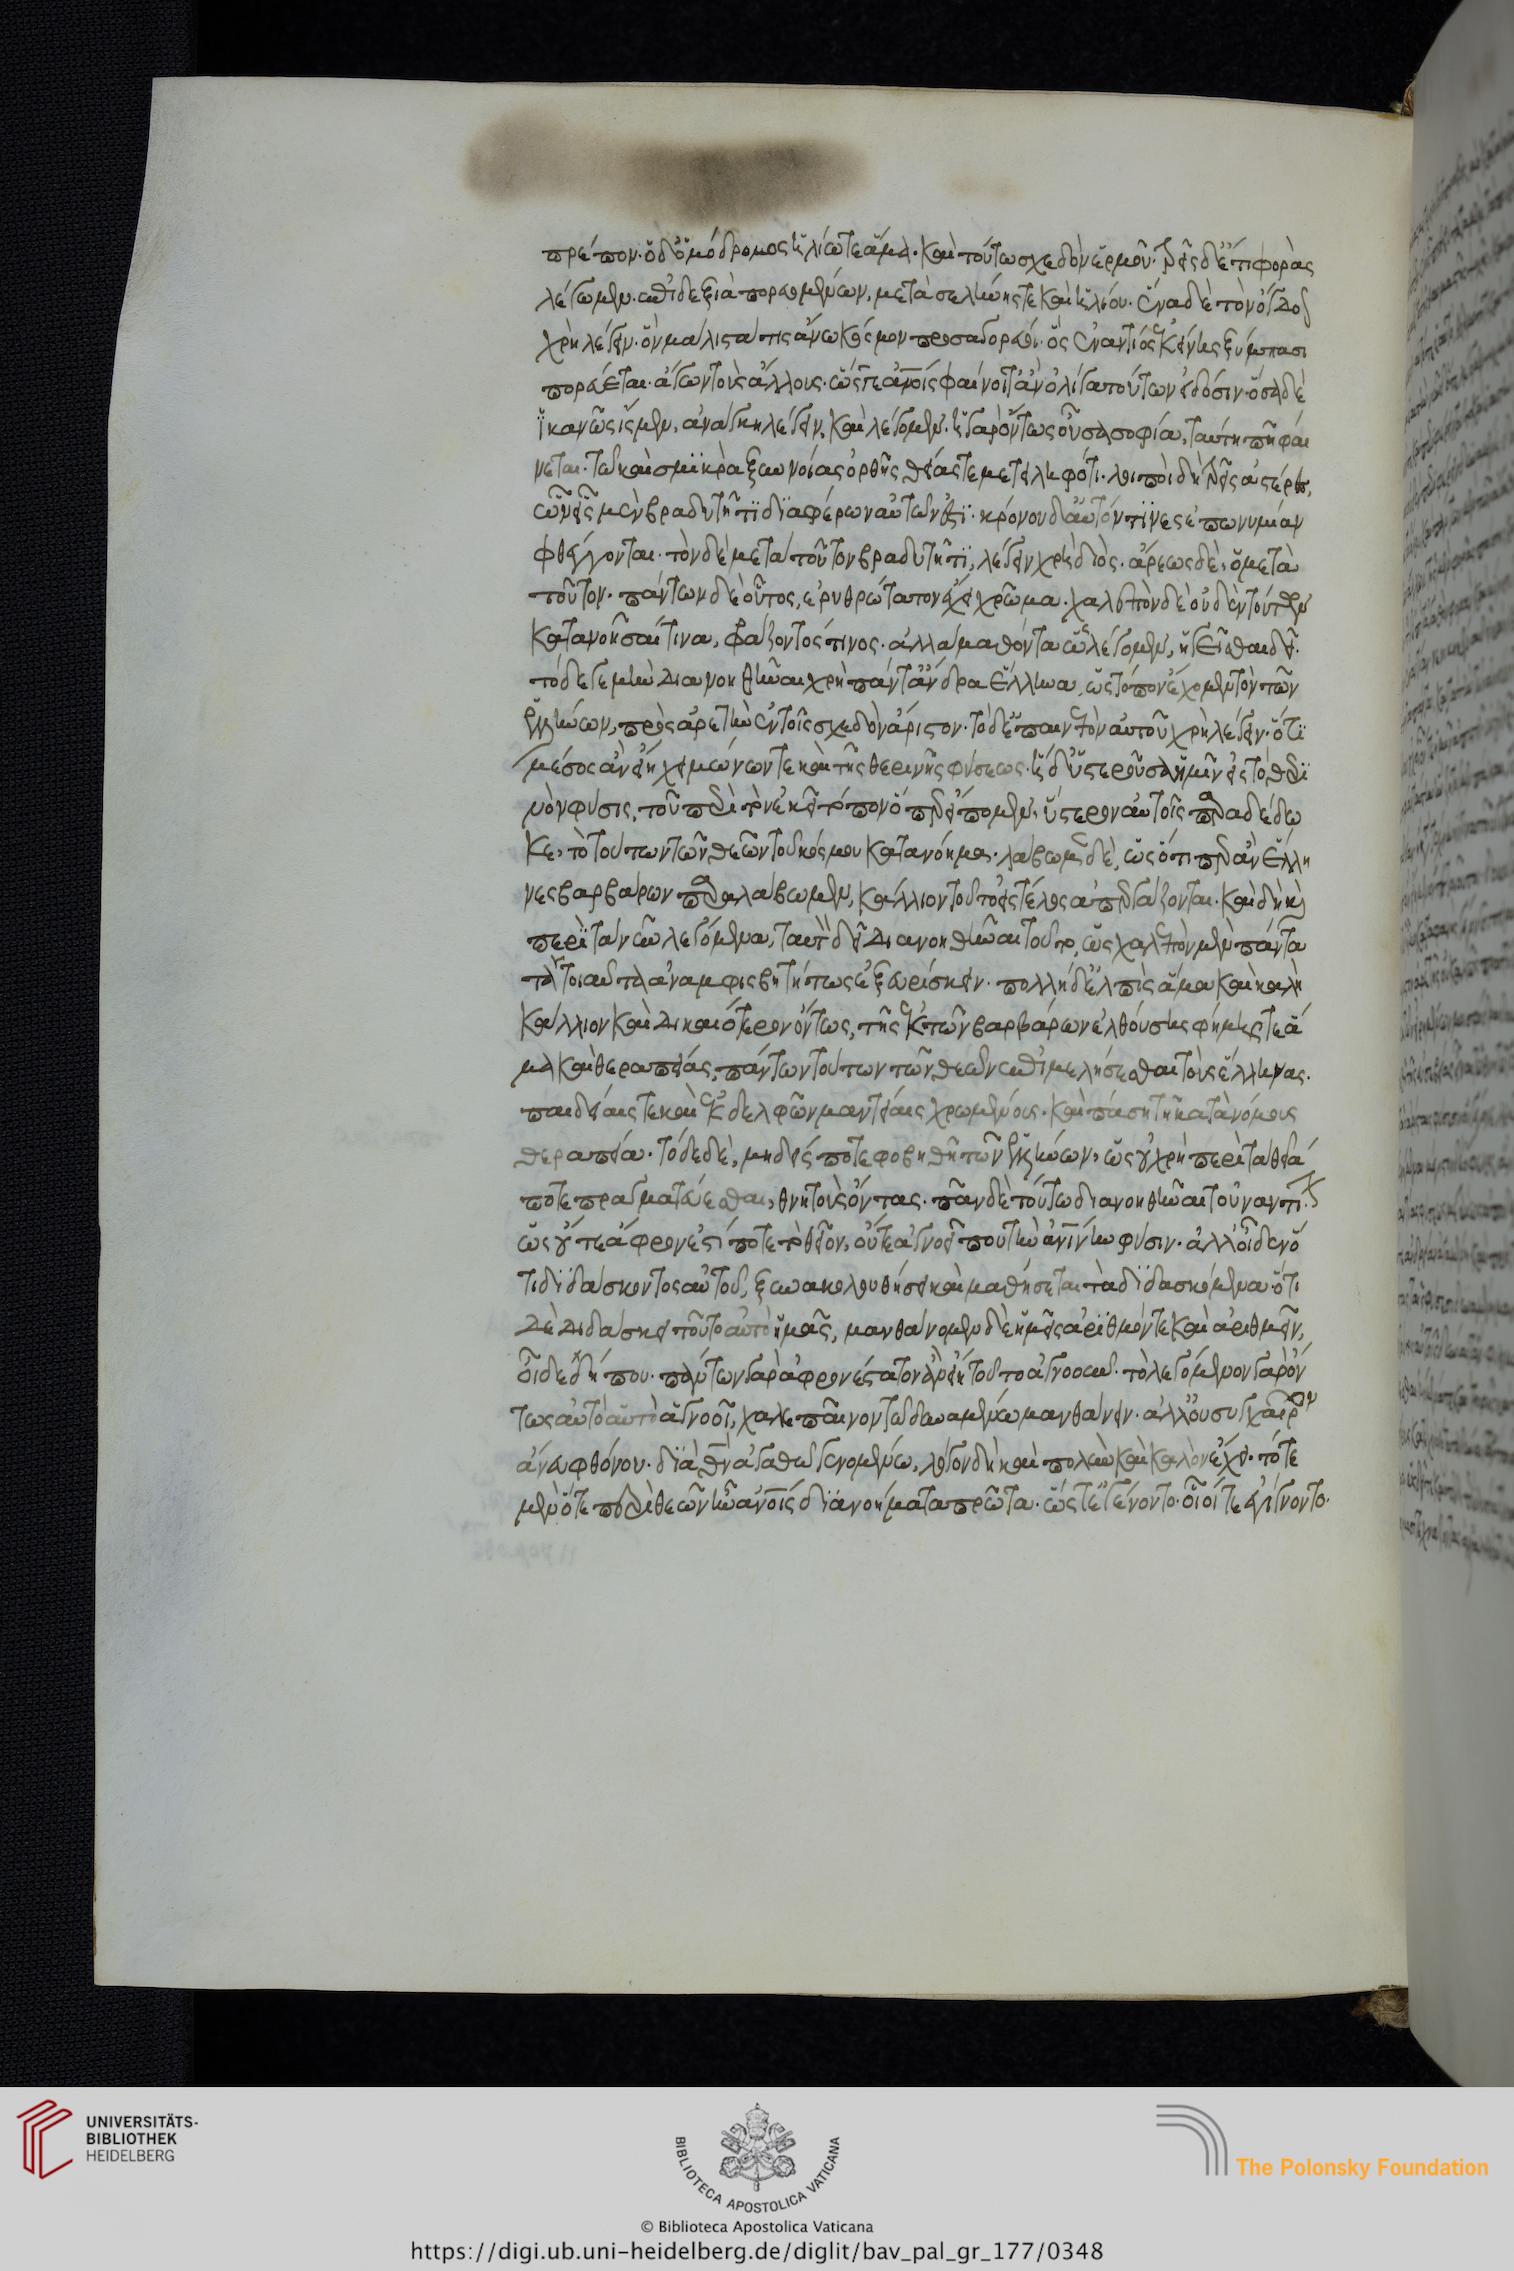 πρέπον· ὁ δ' ὁμόδρομος ἡλίω τε ἅμα· καὶ τούτω σχεδὸν ἑρμοῦ· τρεῖς δ' ἔτι φορὰς
λέγωμεν· ἐπιδεξιὰ πορευομένων, μετὰ σελήνης τε καὶ ἡλίου· ἕνα δὲ τὸν ὄγδοον
χρὴ λέγειν· ὃν μάλιστά τις ἄνω κόσμον προσαγορεύοι· ὃς ἐναντίος ἐκείνοις ξύμπασι
πορεύεται· ἄγων τοὺς ἄλλους· ὥς γε ἀνθρώποις φαίνοιτ' ἂν ὀλίγα τούτων εἰδόσιν· ὅσα δὲ
ἱκανῶς ἴσμεν, ἀνάγκη λέγειν, καὶ λέγομεν· ἡ γὰρ ὄντως οὖσα σοφία, ταύτη πῃ φαί
νεται· τῶ καὶ σμικρὰ ξυννοίας ὀρθῆς θείας τε μετειληφότι· λοιποὶ δὴ τρεῖς ἀστέρες,
ὧν εἷς μὲν βραδυτῆτι διαφέρων αὐτῶν ἐστι· κρόνου δ' αὐτόν τινες ἐπωνυμίαν
φθέγγονται· τὸν δὲ μετὰ τοῦτον βραδυτῆτι, λέγειν χρὴ διός· ἄρεως δὲ, ὁ μετὰ
τοῦτον· πάντων δὲ οὗτος, ἐρυθρώτατον ἔχει χρῶμα· χαλεπὸν δὲ οὐδὲν τούτων
κατανοῆσαί τινα, φράζοντός τινος· ἀλλὰ μαθόντα ὡς λέγομεν, ἡγεῖσθαι δεῖ·
τόδε γε μὴν διανοηθῆναι χρὴ πάντ' ἄνδρα ἕλληνα, ὡς τόπον ἔχομεν τὸν τῶν
ἑλλήνων, πρὸς ἀρετὴν ἐν τοῖς σχεδὸν ἄριστον· τὸ δ' ἐπαινετὸν αὐτοῦ χρὴ λέγειν· ὅτι
μέσος ἂν εἴη χειμώνων τε καὶ τῆς θερινῆς φύσεως· ἡ δ' ὑστεροῦσα ἡμῖν εἰς τὸ θερι
νὸν φύσις, τοῦ περὶ τὸν ἐκεῖ τρόπον ὅπερ εἴπομεν, ὕστερον αὐτοῖς παραδέδω
κε, τὸ τούτων τῶν θεῶν τοῦ κόσμου κατανόημα· λάβωμεν δὲ, ὡς ὅτιπερ ἂν ἕλλη
νες βαρβάρων παραλάβωμεν, κάλλιον τοῦτο εἰς τέλος ἀπεργάζονται· καὶ δὴ καὶ
περὶ τὰ νῦν λεγόμενα, ταυτὸν δεῖ διανοηθῆναι τοῦτο, ὡς χαλεπὸν μὲν πάντα
τὰ τοιαῦτα ἀναμφισβητήτως ἐξευρίσκειν· πολλὴ δ' ἐλπὶς ἅμα καὶ καλὴ
κάλλιον καὶ δικαιότερον ὄντως, τῆς ἐκ τῶν βαρβάρων ἐλθούσης φήμης τε ἅ
μα καὶ θεραπείας, πάντων τούτων τῶν θεῶν ἐπιμελήσεσθαι τοὺς ἕλληνας·
παιδείαις τε καὶ ἐκ δελφῶν μαντείαις χρωμένους· καὶ πάσῃ τῇ κατὰ νόμους
θεραπεία· τόδε δὲ, μηδείς ποτε φοβηθῇ τῶν ἑλλήνων, ὡς οὐ χρὴ περὶ τὰ θεῖά
ποτε πραγματεύεσθαι, θνητοὺς ὄντας· πᾶν δὲ τούτω διανοηθῆναι τοὐναντίον
ὡς οὔτε ἄφρον ἐστί ποτε τὸ θεῖον, οὔτε ἀγνοεῖ που τὴν ἀνθρωπίνην φύσιν· ἀλλ' οἶδεν ὅ
τι διδάσκοντος αὐτοῦ, ξυνακολουθήσει καὶ μαθήσεται τὰ διδασκόμενα· ὅτι
δὲ διδάσκει τοῦτο αὐτὸ ἡμᾶς, μανθάνομεν δὲ ἡμεῖς ἀριθμόν τε καὶ ἀριθμεῖν,
οἶδε δή που· πάντων γὰρ ἀφρονέστατον ἂν εἴη τοῦτο ἀγνοοῦν· τὸ λεγόμενον γὰρ ὄν
τως αὐτὸ αὑτὸ ἀγνοοῖ, χαλεπαῖνον τῶ δυναμένω μανθάνειν· ἀλλ' οὐ συγχαῖρον
ἄνευ φθόνου· διὰ θεὸν ἀγαθῶ γενομένω, λόγον δὴ καὶ πολὺν καὶ καλὸν ἔχει· τότε
μὲν ὅτε περὶ θεῶν ἦν ἀνθρώποις διανοήματα πρῶτα· ὥς τ' ἐγένοντο· οἷοί τε ἐγίγνοντο·
UNIVERSITÄTS-
BIBLIOTHEK
HEIDELBERG
BIBLIOTECA APOSTOLICA VATICANA
The Polonsky Foundation
© Biblioteca Apostolica Vaticana
https://digi.ub.uni-heidelberg.de/diglit/bav_pal_gr_177/0348